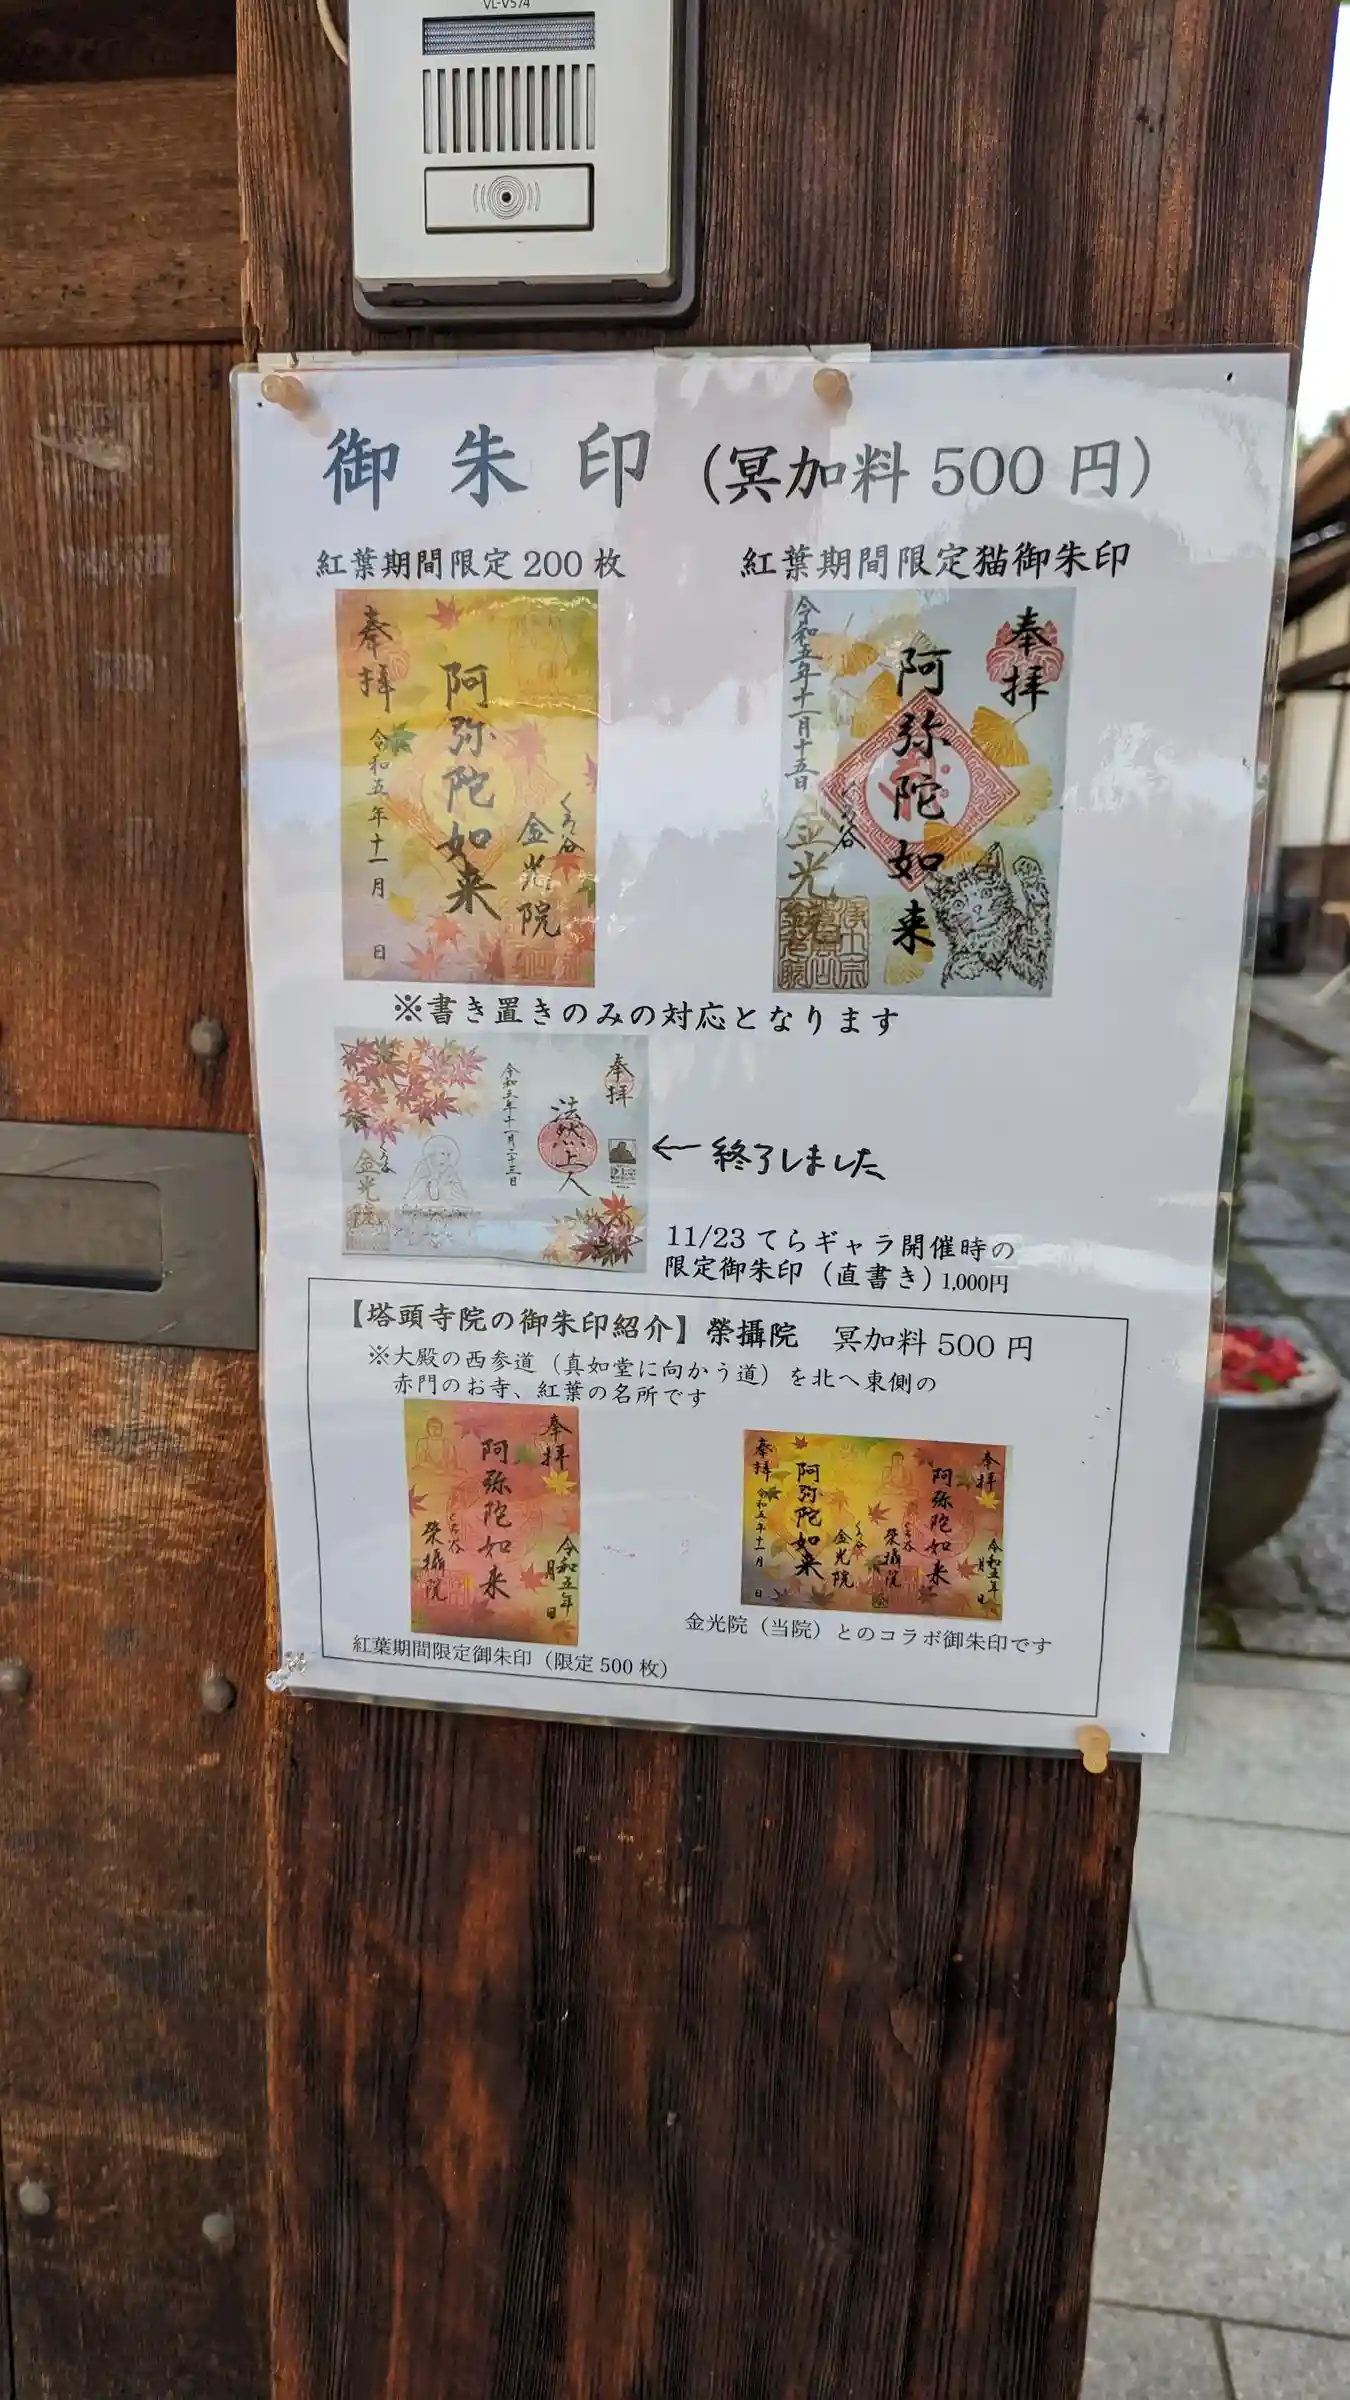 VL-V574
御朱印（冥加料 500 円）
紅葉期間限定 200 枚
紅葉期間限定猫御朱印
奉拝
阿弥陀如来
令和五年十一月 日
くろ谷
金光院
奉拝
阿弥陀如来
令和五年十一月十五日
くろ谷
金光
※書き置きのみの対応となります
奉拝
法然上人
令和五年十一月二十三日
くろ谷
金光院
←終了しました
11/23 てらギャラ開催時の
限定御朱印（直書き）1,000円
【塔頭寺院の御朱印紹介】榮攝院 冥加料 500 円
※大殿の西参道（真如堂に向かう道）を北へ東側の
赤門のお寺、紅葉の名所です
奉拝
阿弥陀如来
令和五年 月 日
くろ谷
榮攝院
奉拝
阿弥陀如来
令和五年 月 日
くろ谷
榮攝院
くろ谷
金光院
阿弥陀如来
奉拝
令和五年十一月 日
紅葉期間限定御朱印（限定 500 枚）
金光院（当院）とのコラボ御朱印です